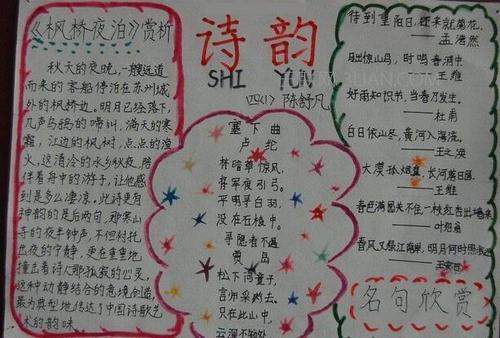 《枫桥夜泊》赏析
秋天的夜晚,一艘远道
而来的客船停泊在苏州城
外的枫桥边。明月已经落下,
几声乌鸦的啼叫,满天的寒
霜,江边的枫树,点点的渔
火,这清冷的水乡秋夜,陪
伴着舟中的游子,让他感
到是多么凄凉。此诗更有
神韵的是后两句,那寒山
寺的夜半钟声,不但衬托
出夜的宁静,更在重重地
撞击着诗人那孤寂的心灵,
这种动静结合的意境创造,
最为典型地传达了中国诗歌艺
术的韵味。
诗韵
SHI YUN
四(1) 陈舒凡
塞下曲
卢纶
林暗草惊风,
将军夜引弓。
平明寻白羽,
没在石棱中。
寻隐者不遇
贾岛
松下问童子,
言师采药去。
只在此山中,
云深不知处
待到重阳日,还来就菊花。
——孟浩然
——王维
好雨知时节,当春乃发生。
——杜甫
白日依山尽,黄河入海流。
——王之涣
大漠孤烟直,长河落日圆。
——王维
春色满园关不住一枝红杏出墙来
——叶绍翁
春风又绿江南岸,明月何时照我还
——王安石
名句欣赏